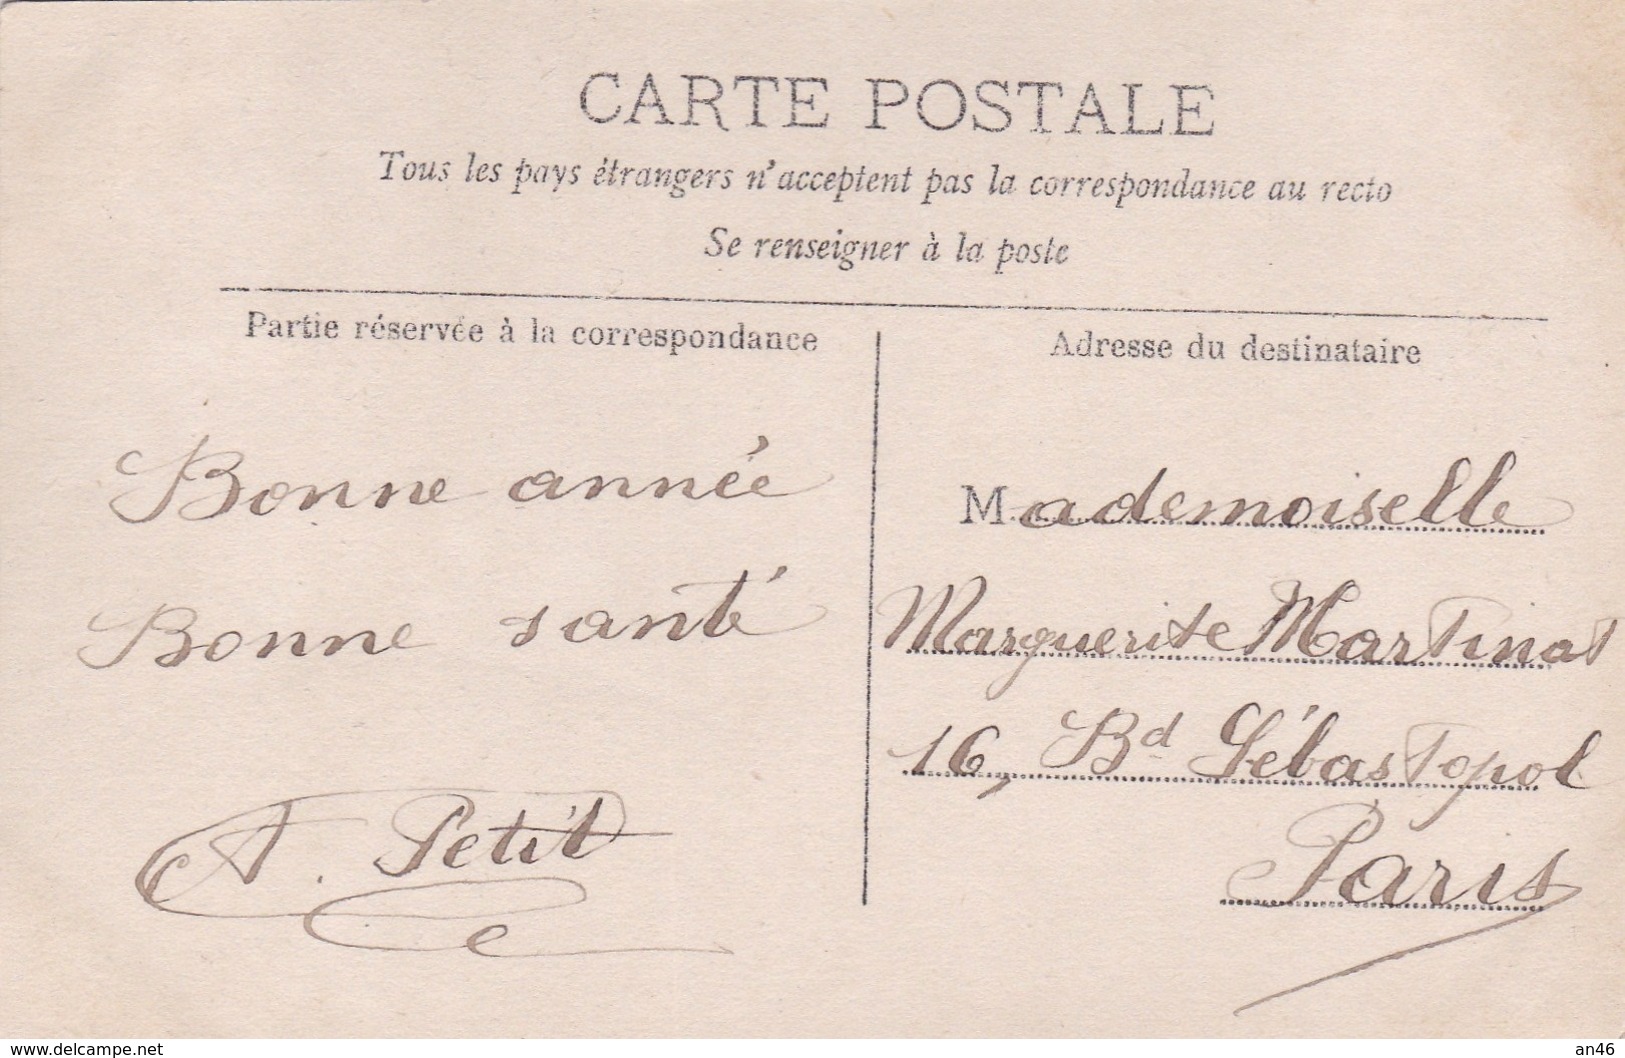 CARTE POSTALE
Tous les pays étrangers n'acceptent pas la correspondance au recto
Se renseigner à la poste
Partie réservée à la correspondance
Bonne année
Bonne santé
A. Petit
Adresse du destinataire
Mademoiselle
Marguerite Martinat
16, Bd Sébastopol
Paris
www.delcampe.net
an46